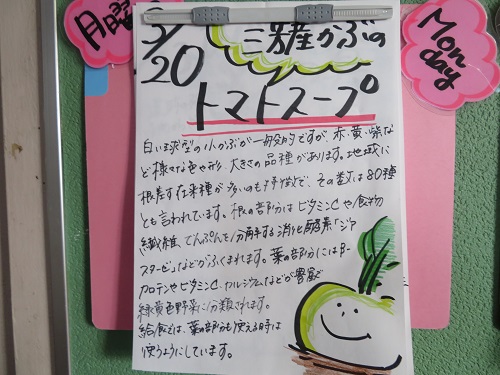 月曜
Monday
3/20
三産かぶの
トマトスープ
白い球型の小かぶが一般的ですが、赤・黄・紫な
ど様々な色や形、大きさの品種があります。地域に
根差す在来種が多いのも特徴で、その数は80種
とも言われています。根の部分はビタミンCや食物
繊維、でんぷんを分解する消化酵素「ジア
スターゼ」などがふくまれます。葉の部分にはβ-
カロテンやビタミンC、カルシウムなどが豊富で
緑黄色野菜に分類されます。
給食では、葉の部分も使える時は
使うようにしています。